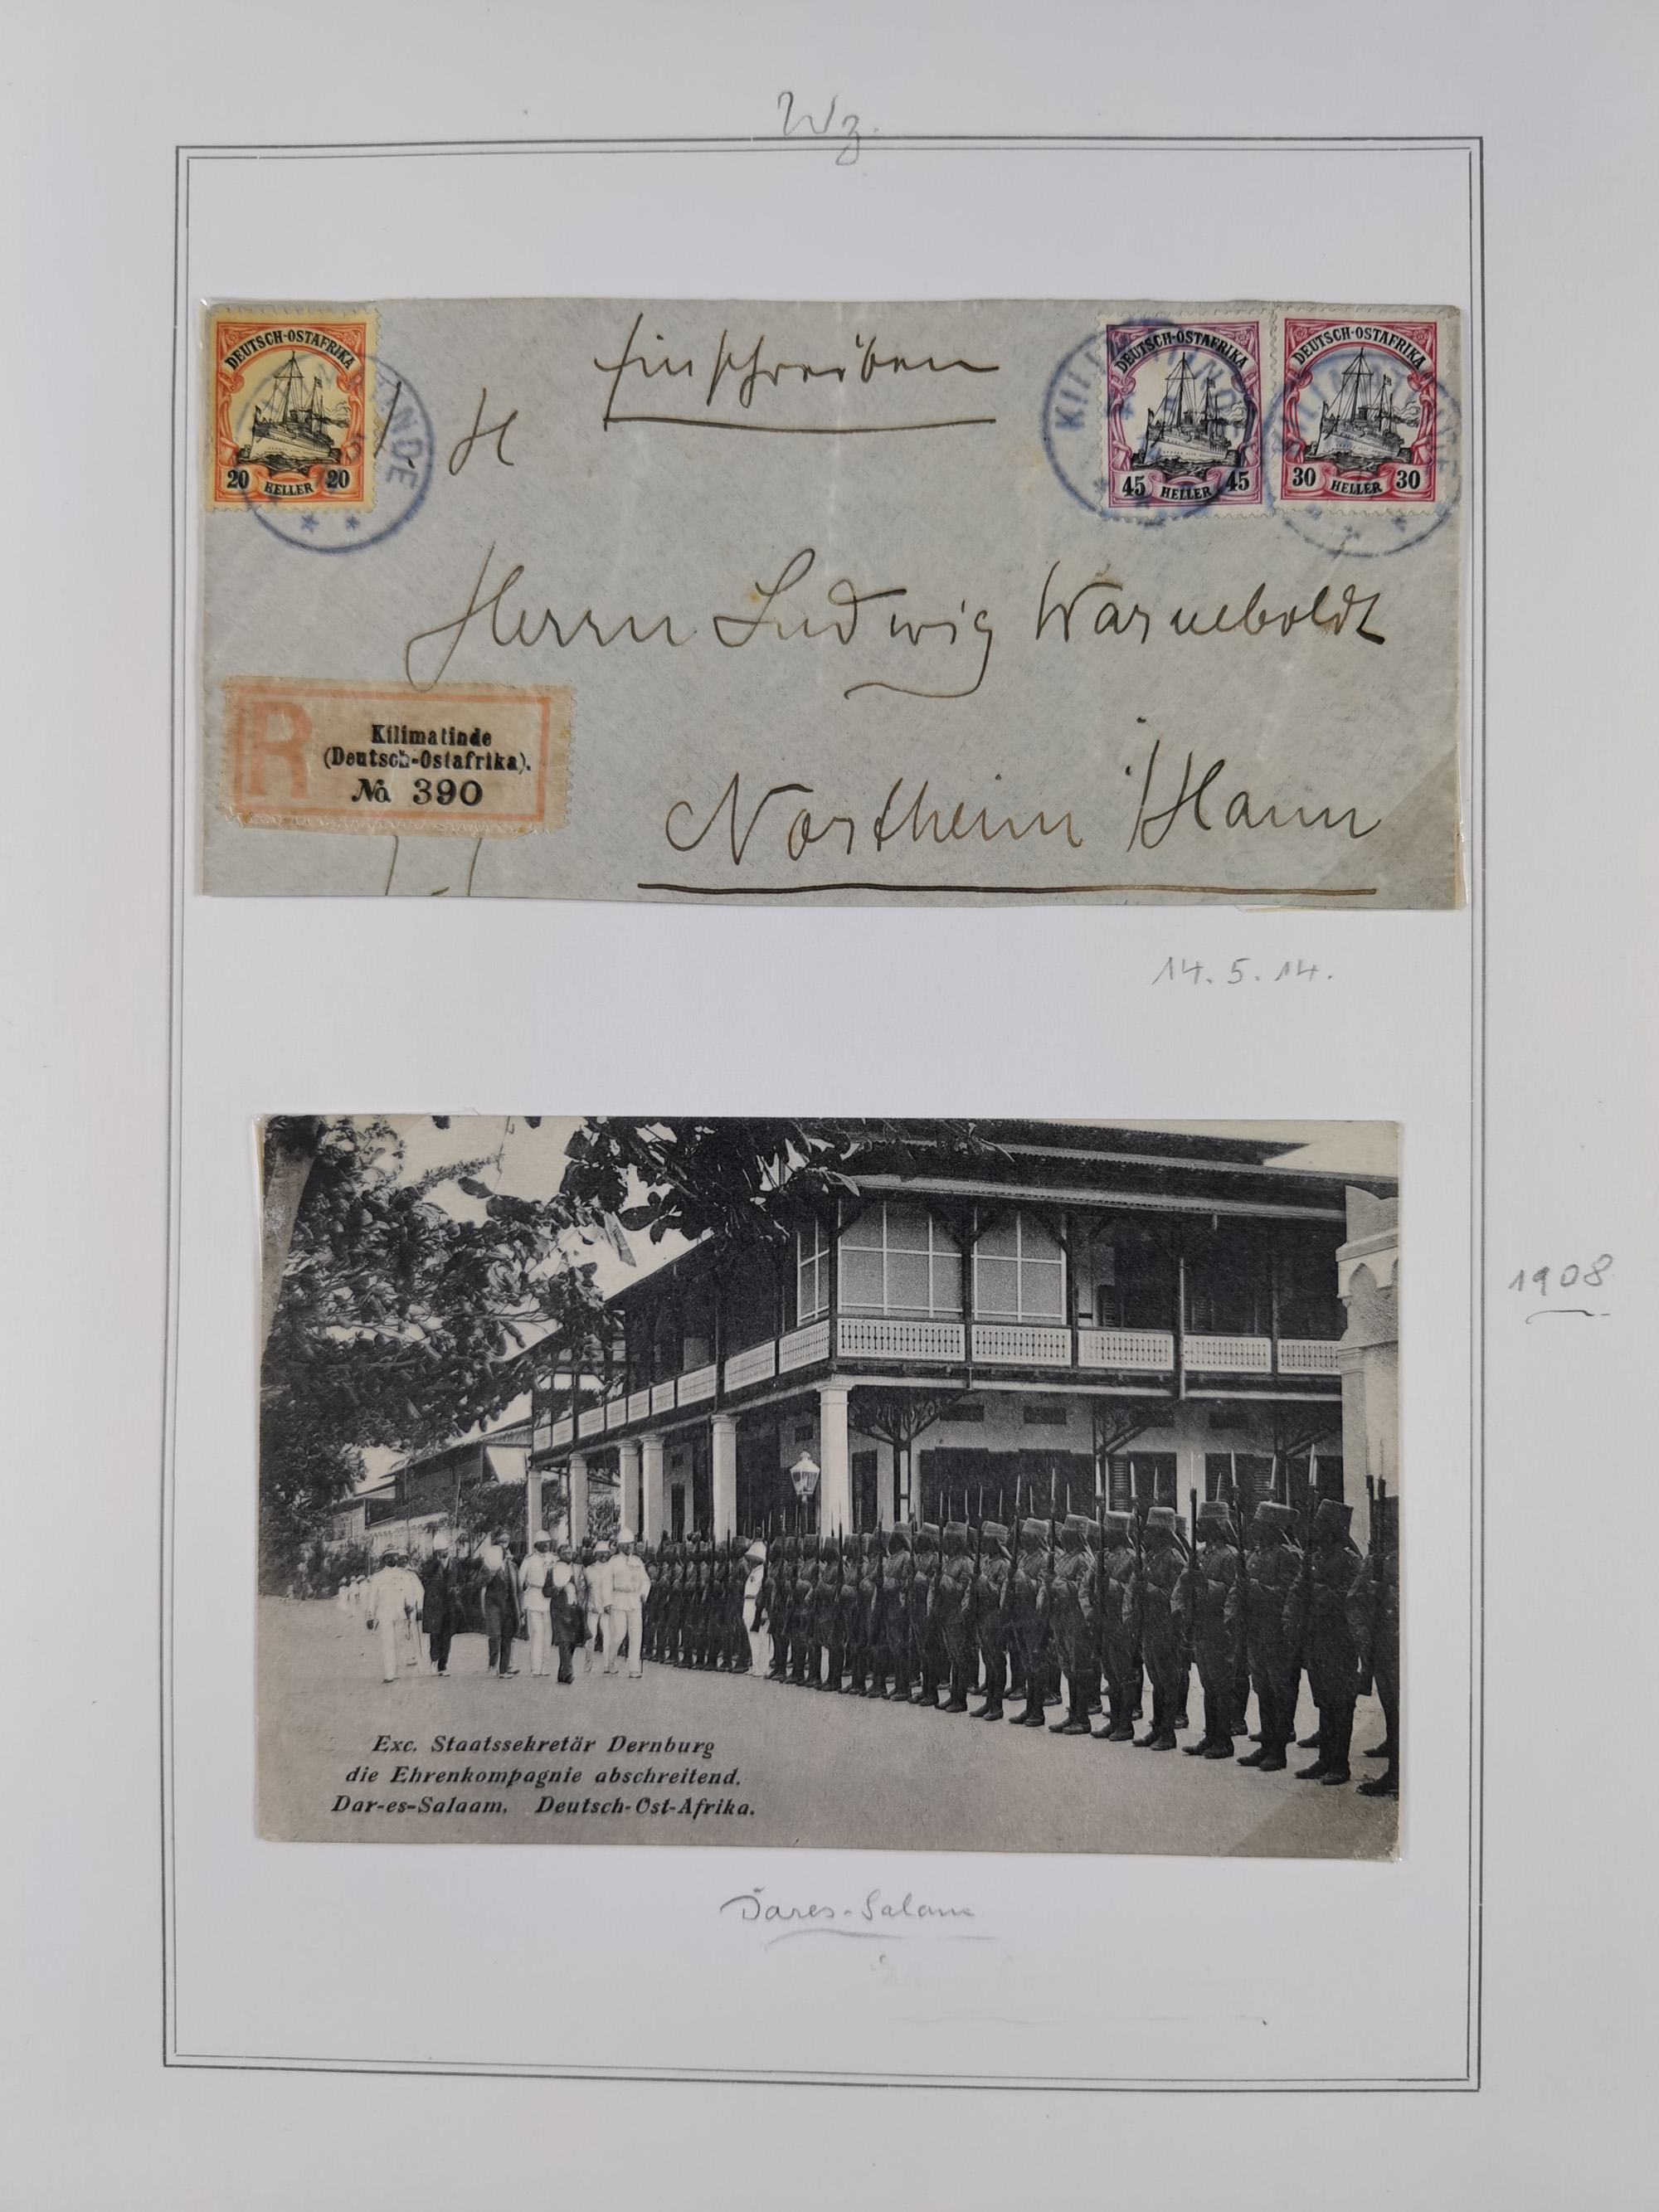 Wz.
DEUTSCH-OSTAFRIKA
20 HELLER 20
Einschreiben
DEUTSCH-OSTAFRIKA
45 HELLER 45
DEUTSCH-OSTAFRIKA
30 HELLER 30
KILIMATINDE
Herrn Ludwig Warneboldt
R
Kilimatinde
(Deutsch-Ostafrika).
No 390
Northeim i/Hann
14.5.14.
1908
Exc. Staatssekretär Dernburg
die Ehrenkompagnie abschreitend.
Dar-es-Salaam. Deutsch-Ost-Afrika.
Dares-Salam